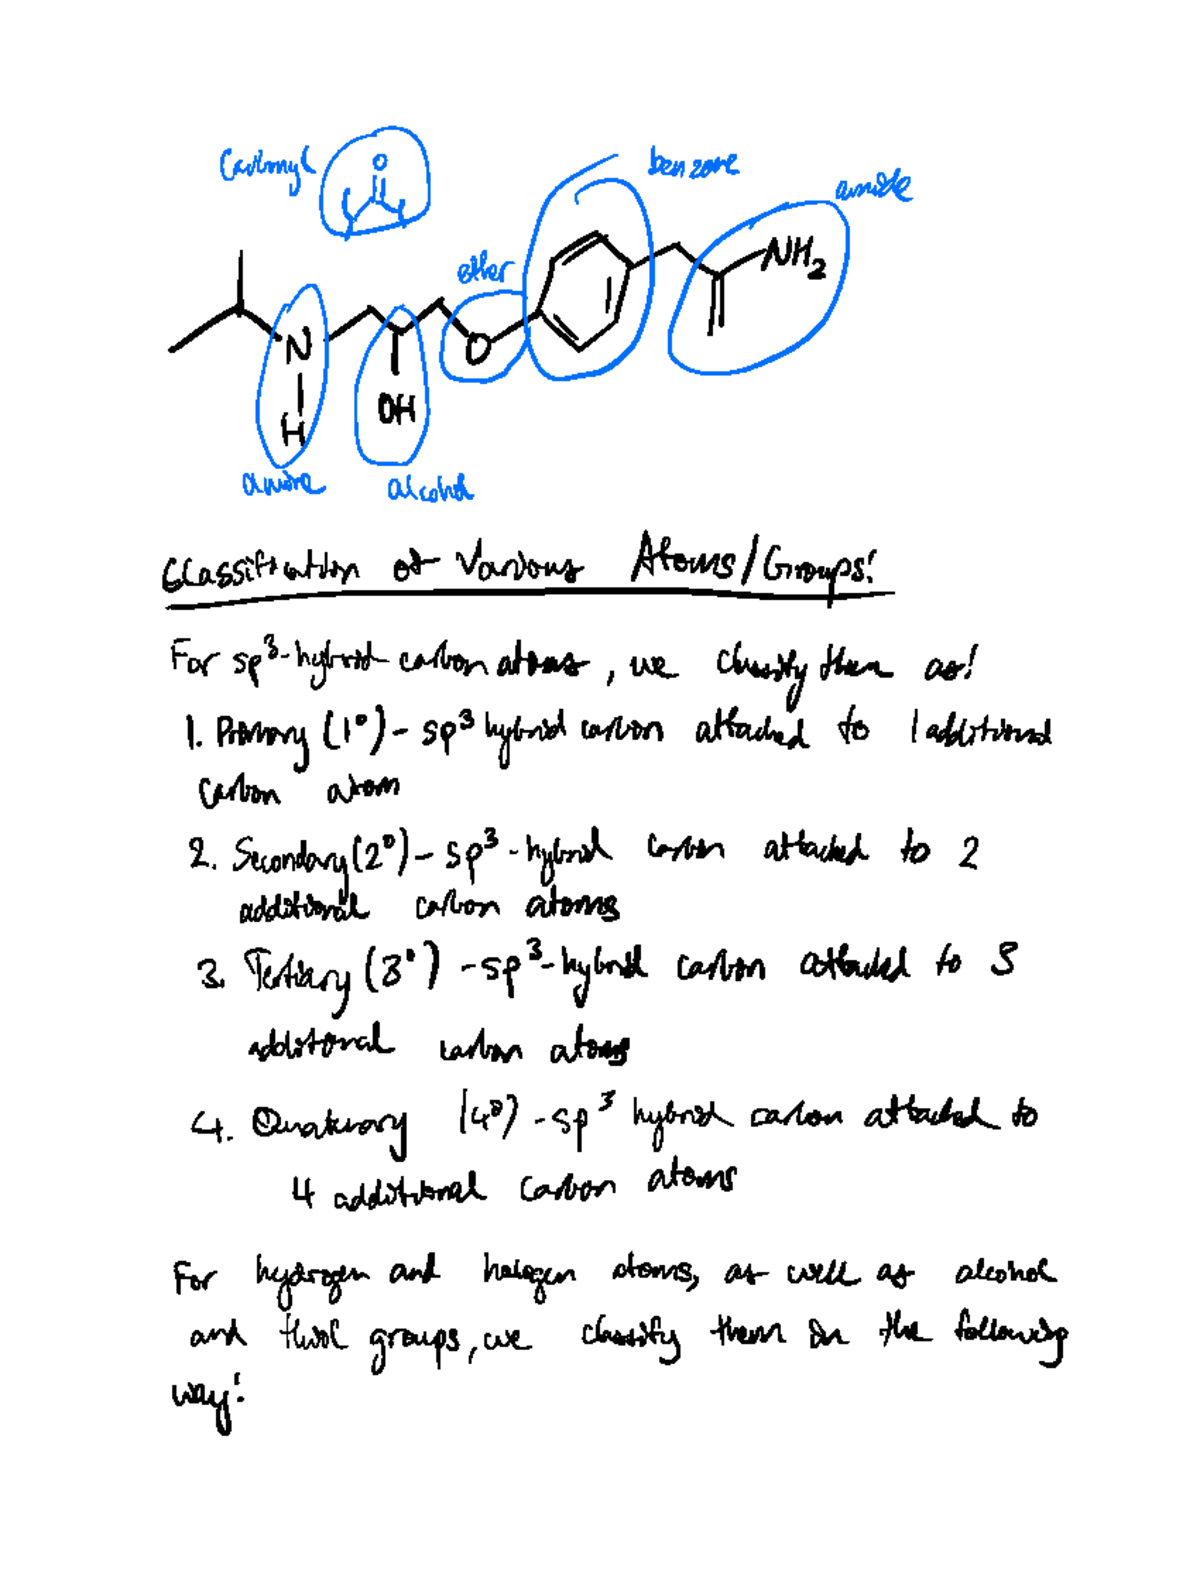 Carbonyl
O
benzene
amide
ether
NH2
N
H
O
OH
amine
alcohol
Classification of Various Atoms/Groups:
For sp³-hybrid carbon atoms, we classify them as:
1. Primary (1°) - sp³ hybrid carbon attached to 1 additional
carbon atom
2. Secondary (2°) - sp³-hybrid carbon attached to 2
additional carbon atoms
3. Tertiary (3°) - sp³-hybrid carbon attached to 3
additional carbon atoms
4. Quaternary (4°) - sp³ hybrid carbon attached to
4 additional carbon atoms
For hydrogen and halogen atoms, as well as alcohol
and thiol groups, we classify them in the following
way: